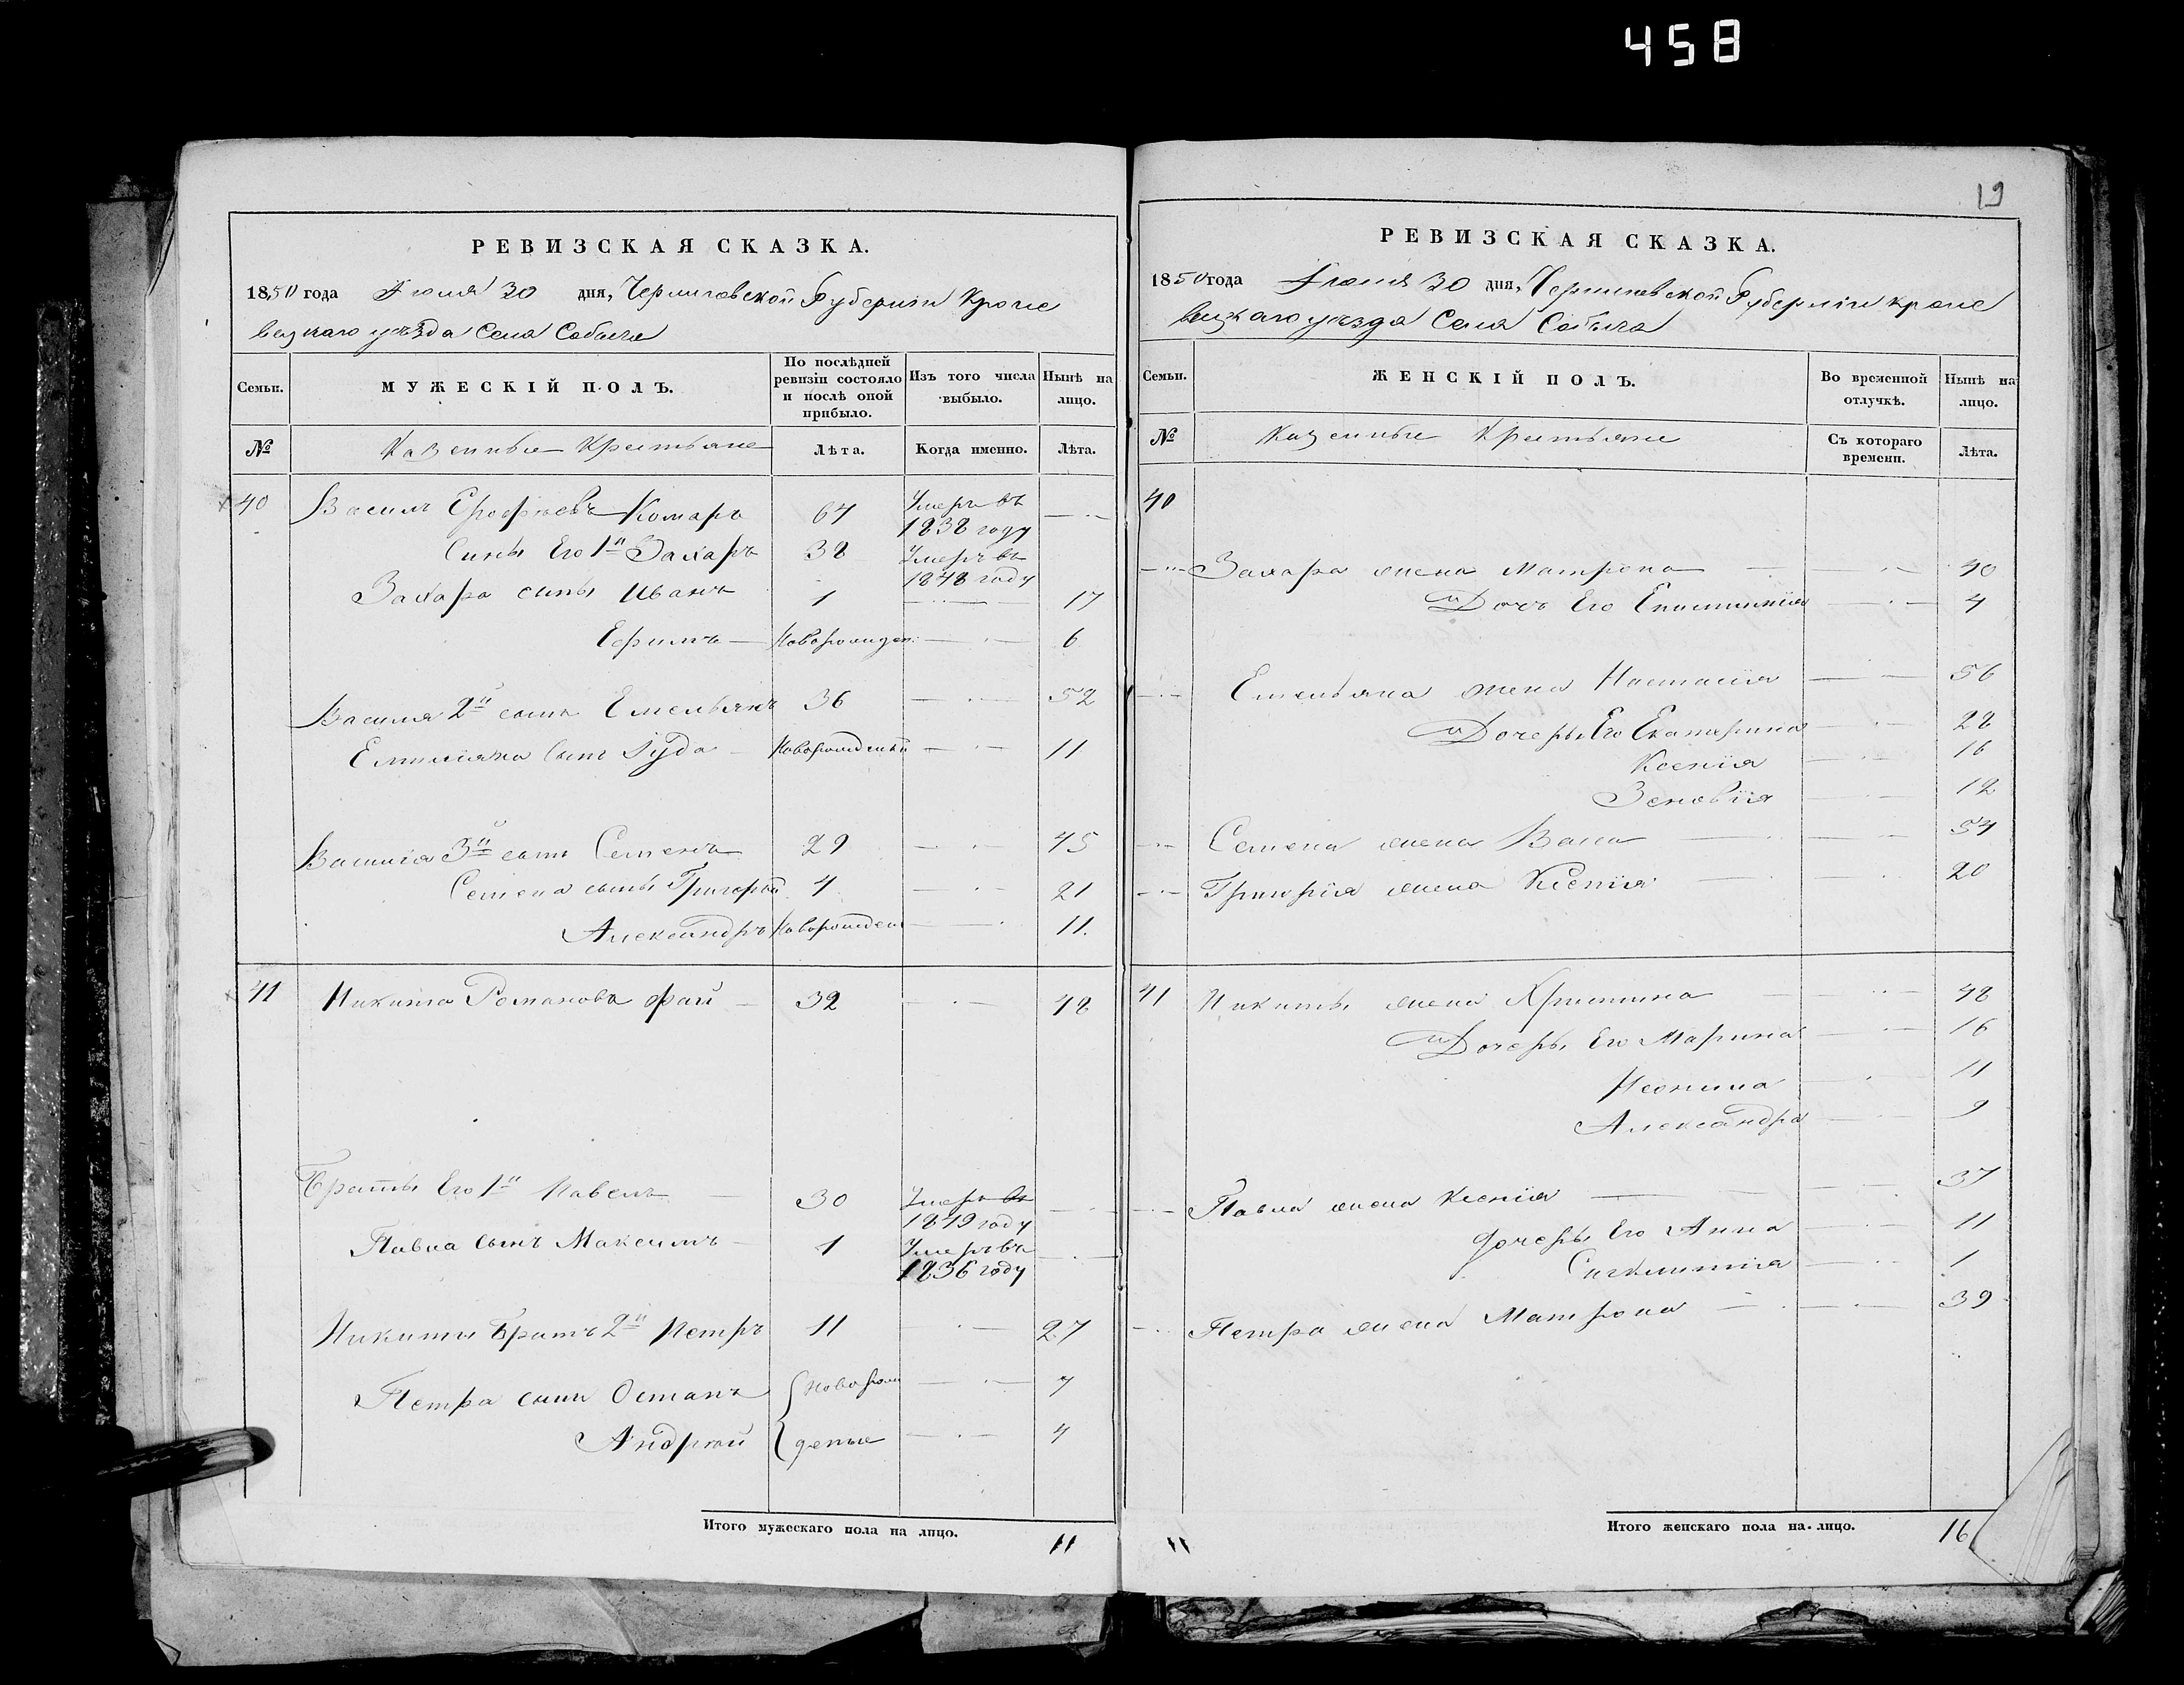 458
РЕВИЗСКАЯ СКАЗКА.
1850 года Іюля 30 дня, Черниговской Губерніи Кроле
вецкаго уѣзда Села Собыча
Семьи. МУЖЕСКІЙ ПОЛЪ. По послѣдней ревизіи состояло и послѣ оной прибыло. Изъ того числа выбыло. Нынѣ на лицо.
№ Казенные Крестьяне Лѣта. Когда именно. Лѣта.
40 Василъ Ерофѣевъ Комаръ 64 Умеръ въ 1838 году
Сины Его 1й Захаръ 38 Умеръ въ 1848 году
Захара сины Иванъ 1 17
Ефимъ Новорожден: 6
Василя 2й сынъ Емельянъ 36 52
Емилияна сынъ Іуда Новорожденный 11
Василія 3й сынъ Семенъ 29 45
Семена сыны Григорій 4 21
Александръ Новорожден 11.
41 Никита Романовъ Фай 32 48
Братъы Его 1й Павелъ 30 Умеръ въ 1849 году
Павла сынъ Максимъ 1 Умеръ въ 1836 году
Никиты Братъ 2й Петръ 11 27
Петра сыны Остапъ Новорож 7
Андрѣй деные 4
Итого мужескаго пола на лицо. 11
19
РЕВИЗСКАЯ СКАЗКА.
1850 года Іюля 30 дня, Черниговской Губерніи Кроле
вецкаго уѣзда Села Собыча
Семьи. ЖЕНСКІЙ ПОЛЪ. Во временной отлучкѣ. Нынѣ на лицо.
№ Казенные Крестьяне Съ котораго времени. Лѣта.
40
Захара жена Матрона 40
Дочъ Его Епистимія 4
Емельяна жена Настасія 56
Дочеры Его Екатерина 28
Ксенія 16
Зеновія 12
Семена жена Васа 54
Григорія жена Ксенія 20
41 Никиты жена Христина 48
Дочеры Его Марина 16
Неонила 11
Александра 9
Павла жена Ксенія 37
Дочеры Его Анна 11
Сигклитія 1
Петра жена Матрона 39
Итого женскаго пола на-лицо. 16